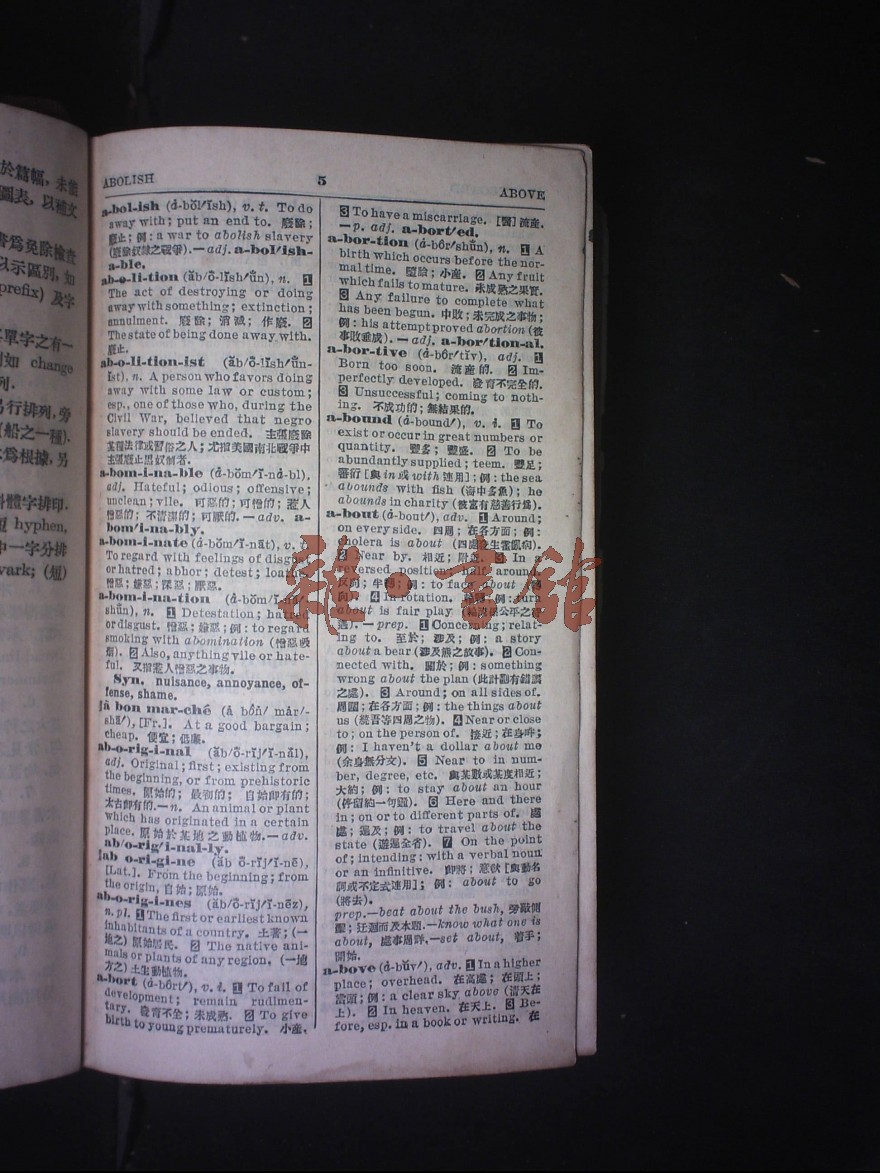 於篇幅，未能
圖表，以補文
書爲免除檢查
以示區別，如
prefix) 及字
單字之有一
例如 change
列.
另行排列，旁
(船之一種).
爲根據，另
體字排印.
hyphen,
中一字分排
vark; (短)
ABOLISH 5 ABOVE
a-bol-ish (á-bŏl′ĭsh), v. t. To do
away with; put an end to. 廢除;
廢止; 例: a war to abolish slavery
(廢除奴隸之戰爭).—adj. a-bol′ish-
a-ble.
ab-o-li-tion (ăb/ŏ-lĭsh′ŭn), n. 1
The act of destroying or doing
away with something; extinction;
annulment. 廢除; 消滅; 作廢. 2
The state of being done away with.
廢止.
ab-o-li-tion-ist (ăb/ŏ-lĭsh′ŭn-
ĭst), n. A person who favors doing
away with some law or custom;
esp., one of those who, during the
Civil War, believed that negro
slavery should be ended. 主張廢除
某種法律或習俗之人; 尤指美國南北戰爭中
主張廢止黑奴制者.
a-bom-i-na-ble (á-bŏm′ĭ-ná-bl),
adj. Hateful; odious; offensive;
unclean; vile. 可惡的; 可憎的; 惹人
憎惡的; 不清潔的; 可厭的.—adv. a-
bom′i-na-bly.
a-bom-i-nate (á-bŏm′ĭ-nāt), v. t.
To regard with feelings of disgust
or hatred; abhor; detest; loathe.
憎惡; 嫌惡; 深惡; 厭惡.
a-bom-i-na-tion (á-bŏm/ĭ-nā′-
shŭn), n. 1 Detestation; hatred
or disgust. 憎惡; 嫌惡; 例: to regard
smoking with abomination (憎惡吸
烟). 2 Also, anything vile or hate-
ful. 又指惹人憎惡之事物.
Syn. nuisance, annoyance, of-
fense, shame.
‖à bon mar-ché (à bôn/ már/-
shā′), [Fr.]. At a good bargain;
cheap. 便宜; 低廉.
ab-o-rig-i-nal (ăb/ŏ-rĭj′ĭ-năl),
adj. Original; first; existing from
the beginning, or from prehistoric
times. 原始的; 最初的; 自始卽有的;
太古卽有的.—n. An animal or plant
which has originated in a certain
place. 原始於某地之動植物.—adv.
ab/o-rig′i-nal-ly.
‖ab o-ri-gi-ne (ăb ŏ-rĭj′ĭ-nē),
[Lat.]. From the beginning; from
the origin, 自始; 原始.
ab-o-rig-i-nes (ăb/ŏ-rĭj′ĭ-nēz),
n. pl. 1 The first or earliest known
inhabitants of a country. 土著; (一
地之) 原始居民. 2 The native ani-
mals or plants of any region. (一地
方之) 土生動植物.
a-bort (á-bôrt′), v. i. 1 To fail of
development; remain rudimen-
tary. 發育不全; 未成熟. 2 To give
birth to young prematurely. 小產.
3 To have a miscarriage. [醫] 流產.
—p. adj. a-bort′ed.
a-bor-tion (á-bôr′shŭn), n. 1 A
birth which occurs before the nor-
mal time. 墮胎; 小產. 2 Any fruit
which fails to mature. 未成熟之果實.
3 Any failure to complete what
has been begun. 中敗; 未完成之事物;
例: his attempt proved abortion (彼
事敗垂成).—adj. a-bor′tion-al.
a-bor-tive (á-bôr′tĭv), adj. 1
Born too soon. 流產的. 2 Im-
perfectly developed. 發育不完全的.
3 Unsuccessful; coming to noth-
ing. 不成功的; 無結果的.
a-bound (á-bound′), v. i. 1 To
exist or occur in great numbers or
quantity. 豐多; 豐盛. 2 To be
abundantly supplied; teem. 豐足;
蕃衍 [與 in 或 with 連用]; 例: the sea
abounds with fish (海中多魚); he
abounds in charity (彼富有慈善行爲).
a-bout (á-bout′), adv. 1 Around;
on every side. 四周; 在各方面; 例:
cholera is about (四處發生霍亂病).
2 Near by. 相近; 附近. 3 In a
reversed position; half around.
反向; 半轉; 例: to face about
4 In rotation. 例: turn
about is fair play
—prep. 1 Concerning; relat-
ing to. 至於; 涉及; 例: a story
about a bear (涉及熊之故事). 2 Con-
nected with. 關於; 例: something
wrong about the plan (此計劃有錯誤
之處). 3 Around; on all sides of.
周圍; 在各方面; 例: the things about
us (繞吾等四周之物). 4 Near or close
to; on the person of. 接近; 在身畔;
例: I haven't a dollar about me
(余身無分文). 5 Near to in num-
ber, degree, etc. 與某數或某度相近;
大約; 例: to stay about an hour
(停留約一句鐘). 6 Here and there
in; on or to different parts of. 處
處; 遍及; 例: to travel about the
state (遊遍全省). 7 On the point
of; intending; with a verbal noun
or an infinitive. 卽將; 意欲 [與動名
詞或不定式連用]; 例: about to go
(將去).
prep.—beat about the bush, 旁敲側
擊; 迂迴而及本題.—know what one is
about, 處事周詳.—set about, 着手;
開始.
a-bove (á-bŭv′), adv. 1 In a higher
place; overhead. 在高處; 在頭上;
當頭; 例: a clear sky above (清天在
上). 2 In heaven. 在天上. 3 Be-
fore, esp. in a book or writing. 在
雜·書館